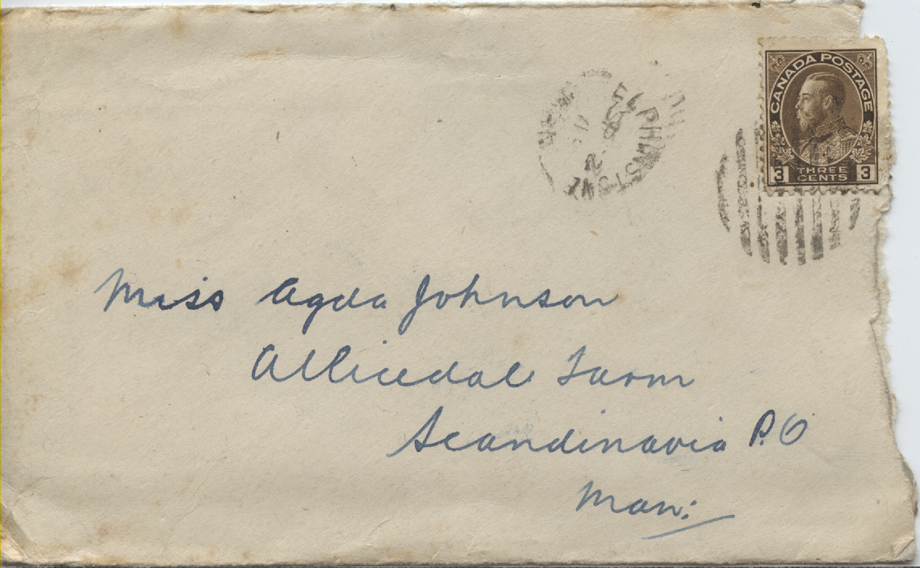 ELPHINSTONE
CANADA POSTAGE
3 THREE CENTS 3
Miss Agda Johnson
Allicedal Farm
Scandinavia P.O
Man: